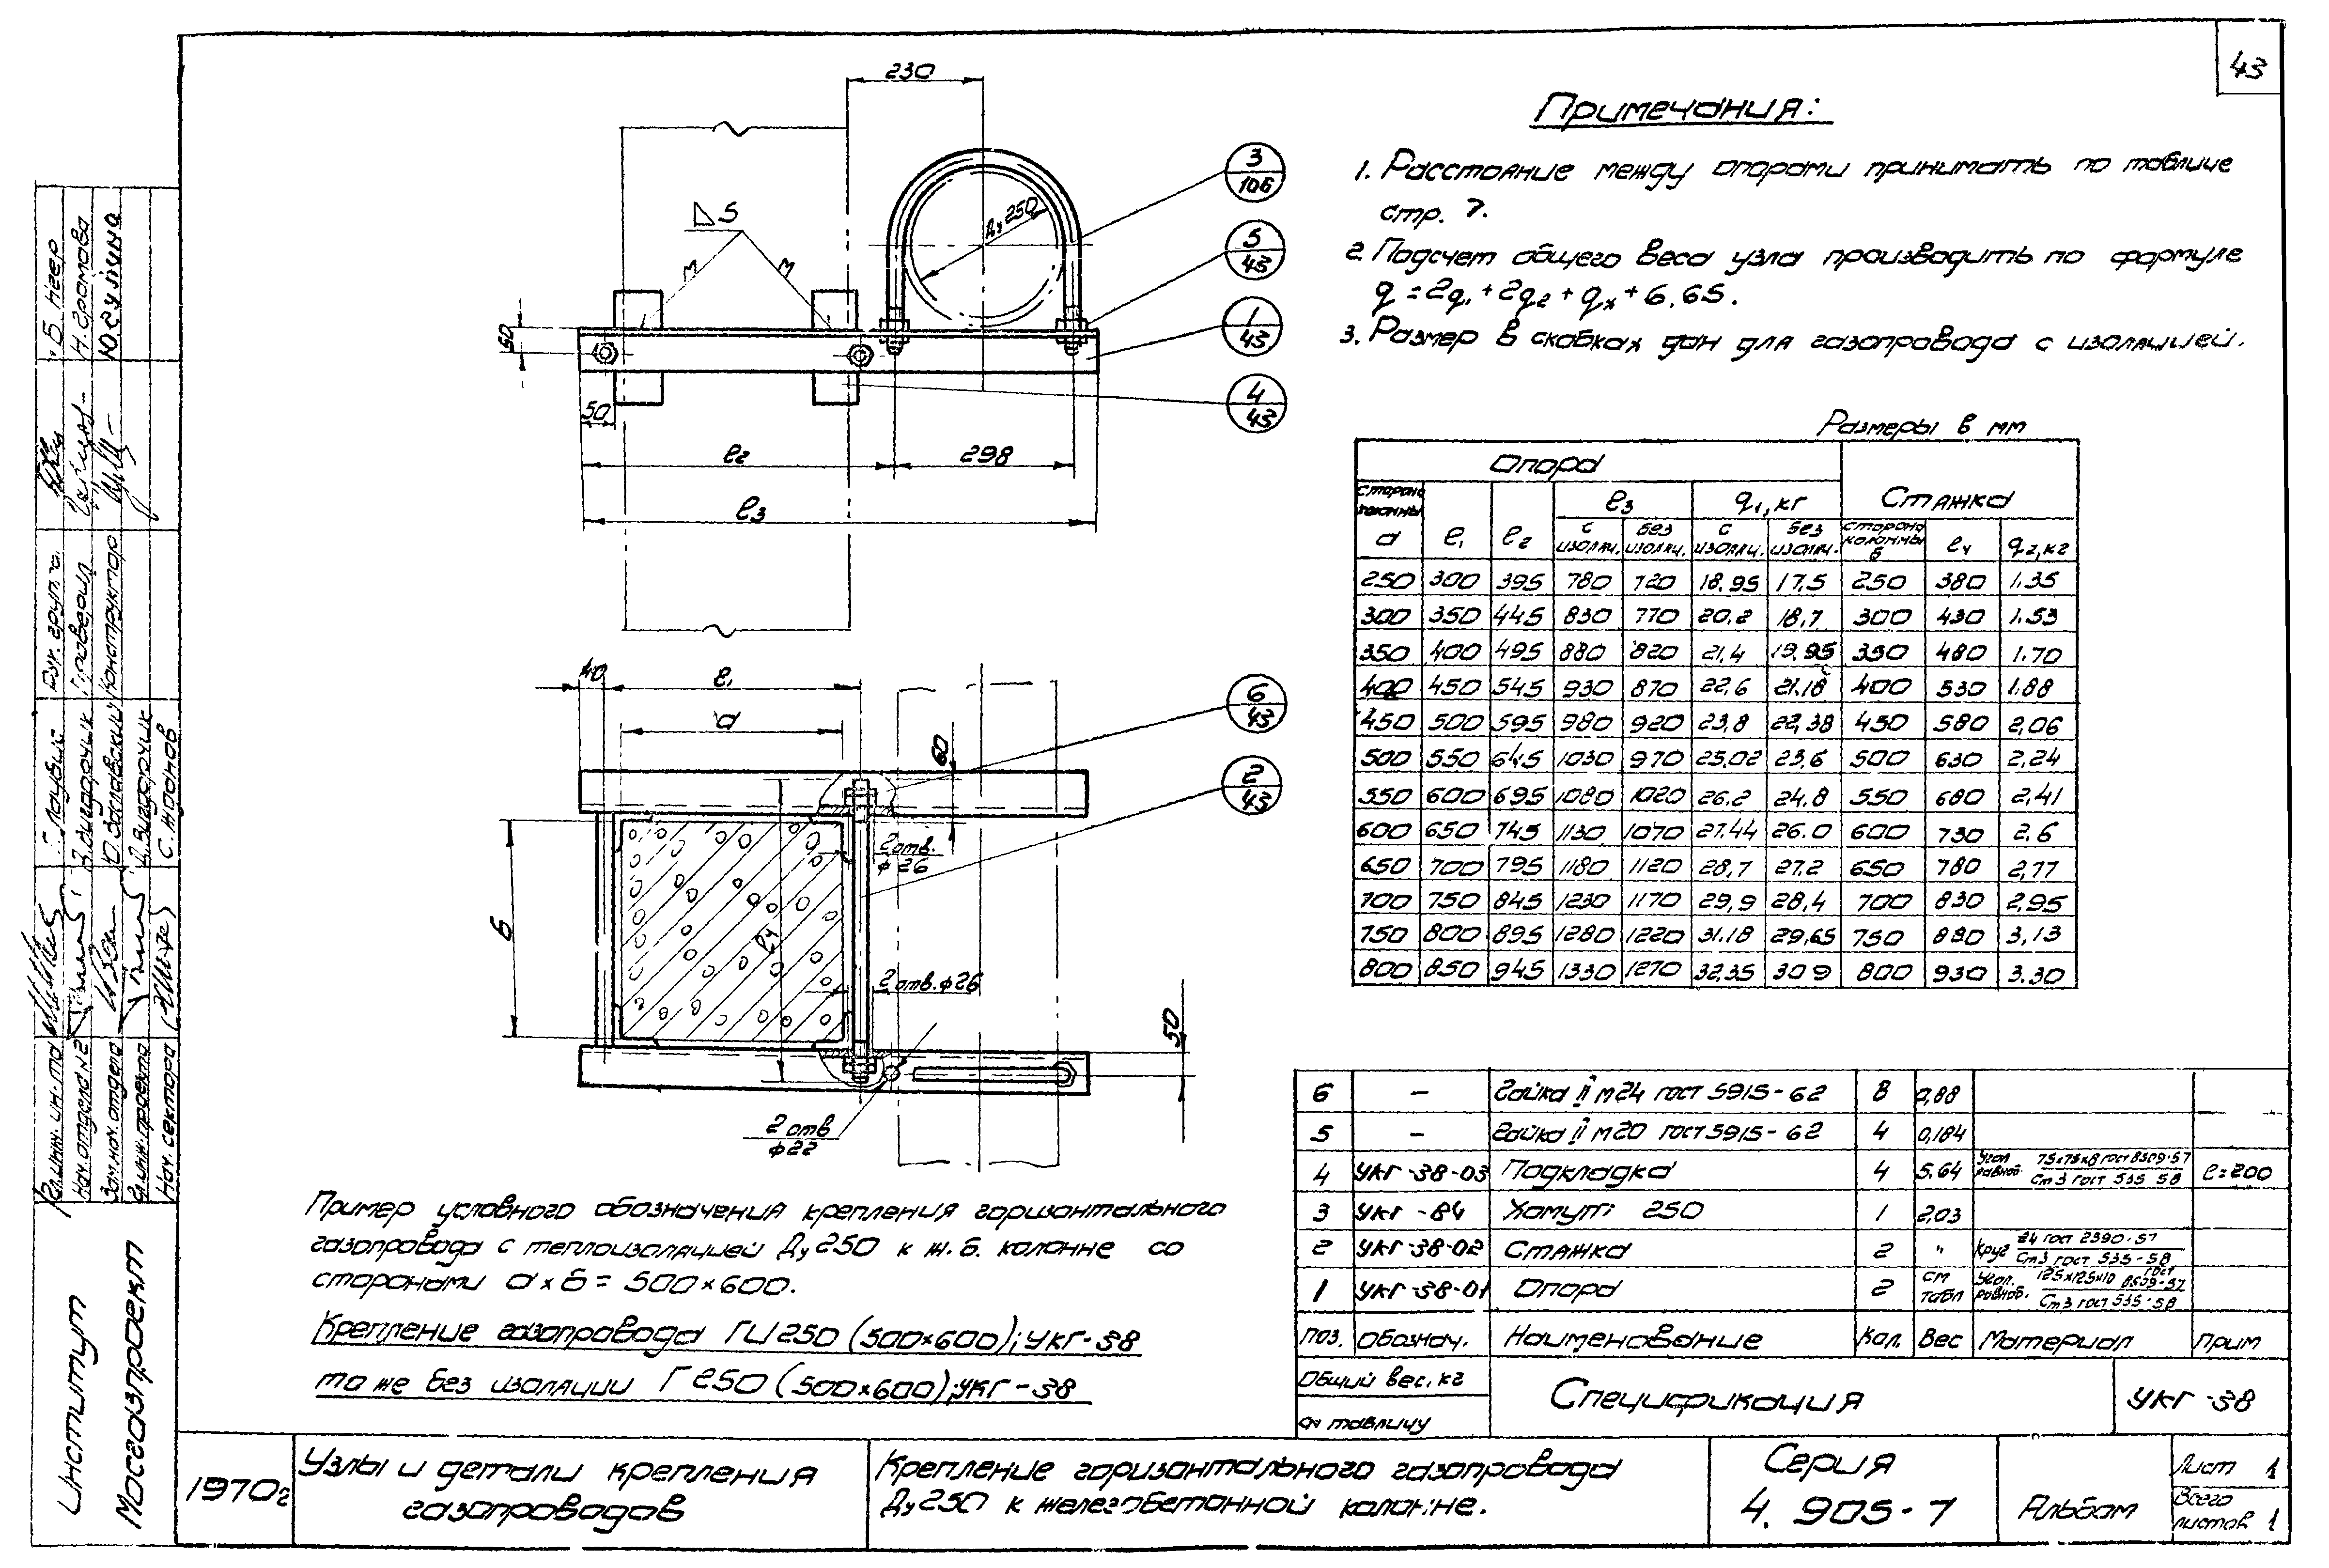 43
230
Ду 250
5
М
М
3
106
5
43
1
43
4
43
50
50
ℓ2
298
ℓ3
40
ℓ1
а
60
6
43
2
43
2 отв.
ф 26
б
ℓ4
2 отв. ф26
50
2 отв
ф22
Примечания:
1. Расстояние между опорами принимать по таблице
стр. 7.
2. Подсчет общего веса узла производить по формуле
q = 2q1 + 2q2 + qx + 6,65.
3. Размер в скобках дан для газопровода с изоляцией.
Размеры в мм
Опора | Стяжка
сторона колонны а | ℓ1 | ℓ2 | ℓ3 с изоляц. | ℓ3 без изоляц. | q1, кг с изоляц. | q1, кг без изоляц. | сторона колонны б | ℓ4 | q2, кг
250 300 395 780 720 18.95 17,5 250 380 1.35
300 350 445 830 770 20,2 18,7 300 430 1.53
350 400 495 880 820 21,4 19,95 350 480 1.70
400 450 545 930 870 22,6 21.18 400 530 1.88
450 500 595 980 920 23,8 22,38 450 580 2,06
500 550 645 1030 970 25,02 23,6 500 630 2,24
550 600 695 1080 1020 26.2 24,8 550 680 2,41
600 650 745 1130 1070 27.44 26.0 600 730 2.6
650 700 795 1180 1120 28,7 27.2 650 780 2,77
700 750 845 1230 1170 29,9 28,4 700 830 2,95
750 800 895 1280 1220 31.18 29,65 750 880 3,13
800 850 945 1330 1270 32,35 30 9 800 930 3.30
6 – Гайка II М24 гост 5915-62 8 0,88
5 – Гайка II М20 гост 5915-62 4 0,184
4 УКГ-38-03 Подкладка 4 5.64 Угол равноб. 75х75х8 гост 8509-57 Ст 3 гост 535 58 ℓ=200
3 УКГ-84 Хомут 250 1 2,03
2 УКГ-38-02 Стяжка 2 " Круг 24 гост 2590-57 Ст3 гост 535-58
1 УКГ-38-01 Опора 2 см табл Угол. равноб. 125х125х10 гост 8509-57 Ст 3 гост 535-58
поз. Обознач. Наименование Кол. Вес Материал Прим
Общий вес, кг
см таблицу
Спецификация
УКГ-38
Пример условного обозначения крепления горизонтального
газопровода с теплоизоляцией Ду 250 к ж.б. колонне со
сторонами а х б = 500х600.
Крепление газопровода ГИ 250 (500х600); УКГ-38
то же без изоляции Г 250 (500х600); УКГ-38
1970г
Узлы и детали крепления
газопроводов
Крепление горизонтального газопровода
Ду 250 к железобетонной колонне.
Серия
4. 905-7
Альбом
Лист 1
Всего
листов 1
Институт
Мосгазпроект
Гл. инж. ин-та
Нач. отдела №2
Зам. нач. отдела
Гл. инж. проекта
Нач. сектора
О. Заславский
А. Вигдорчик
С. Жданов
Рук. групп.
Проверил
Конструктор
Б. Негер
Н. Громова